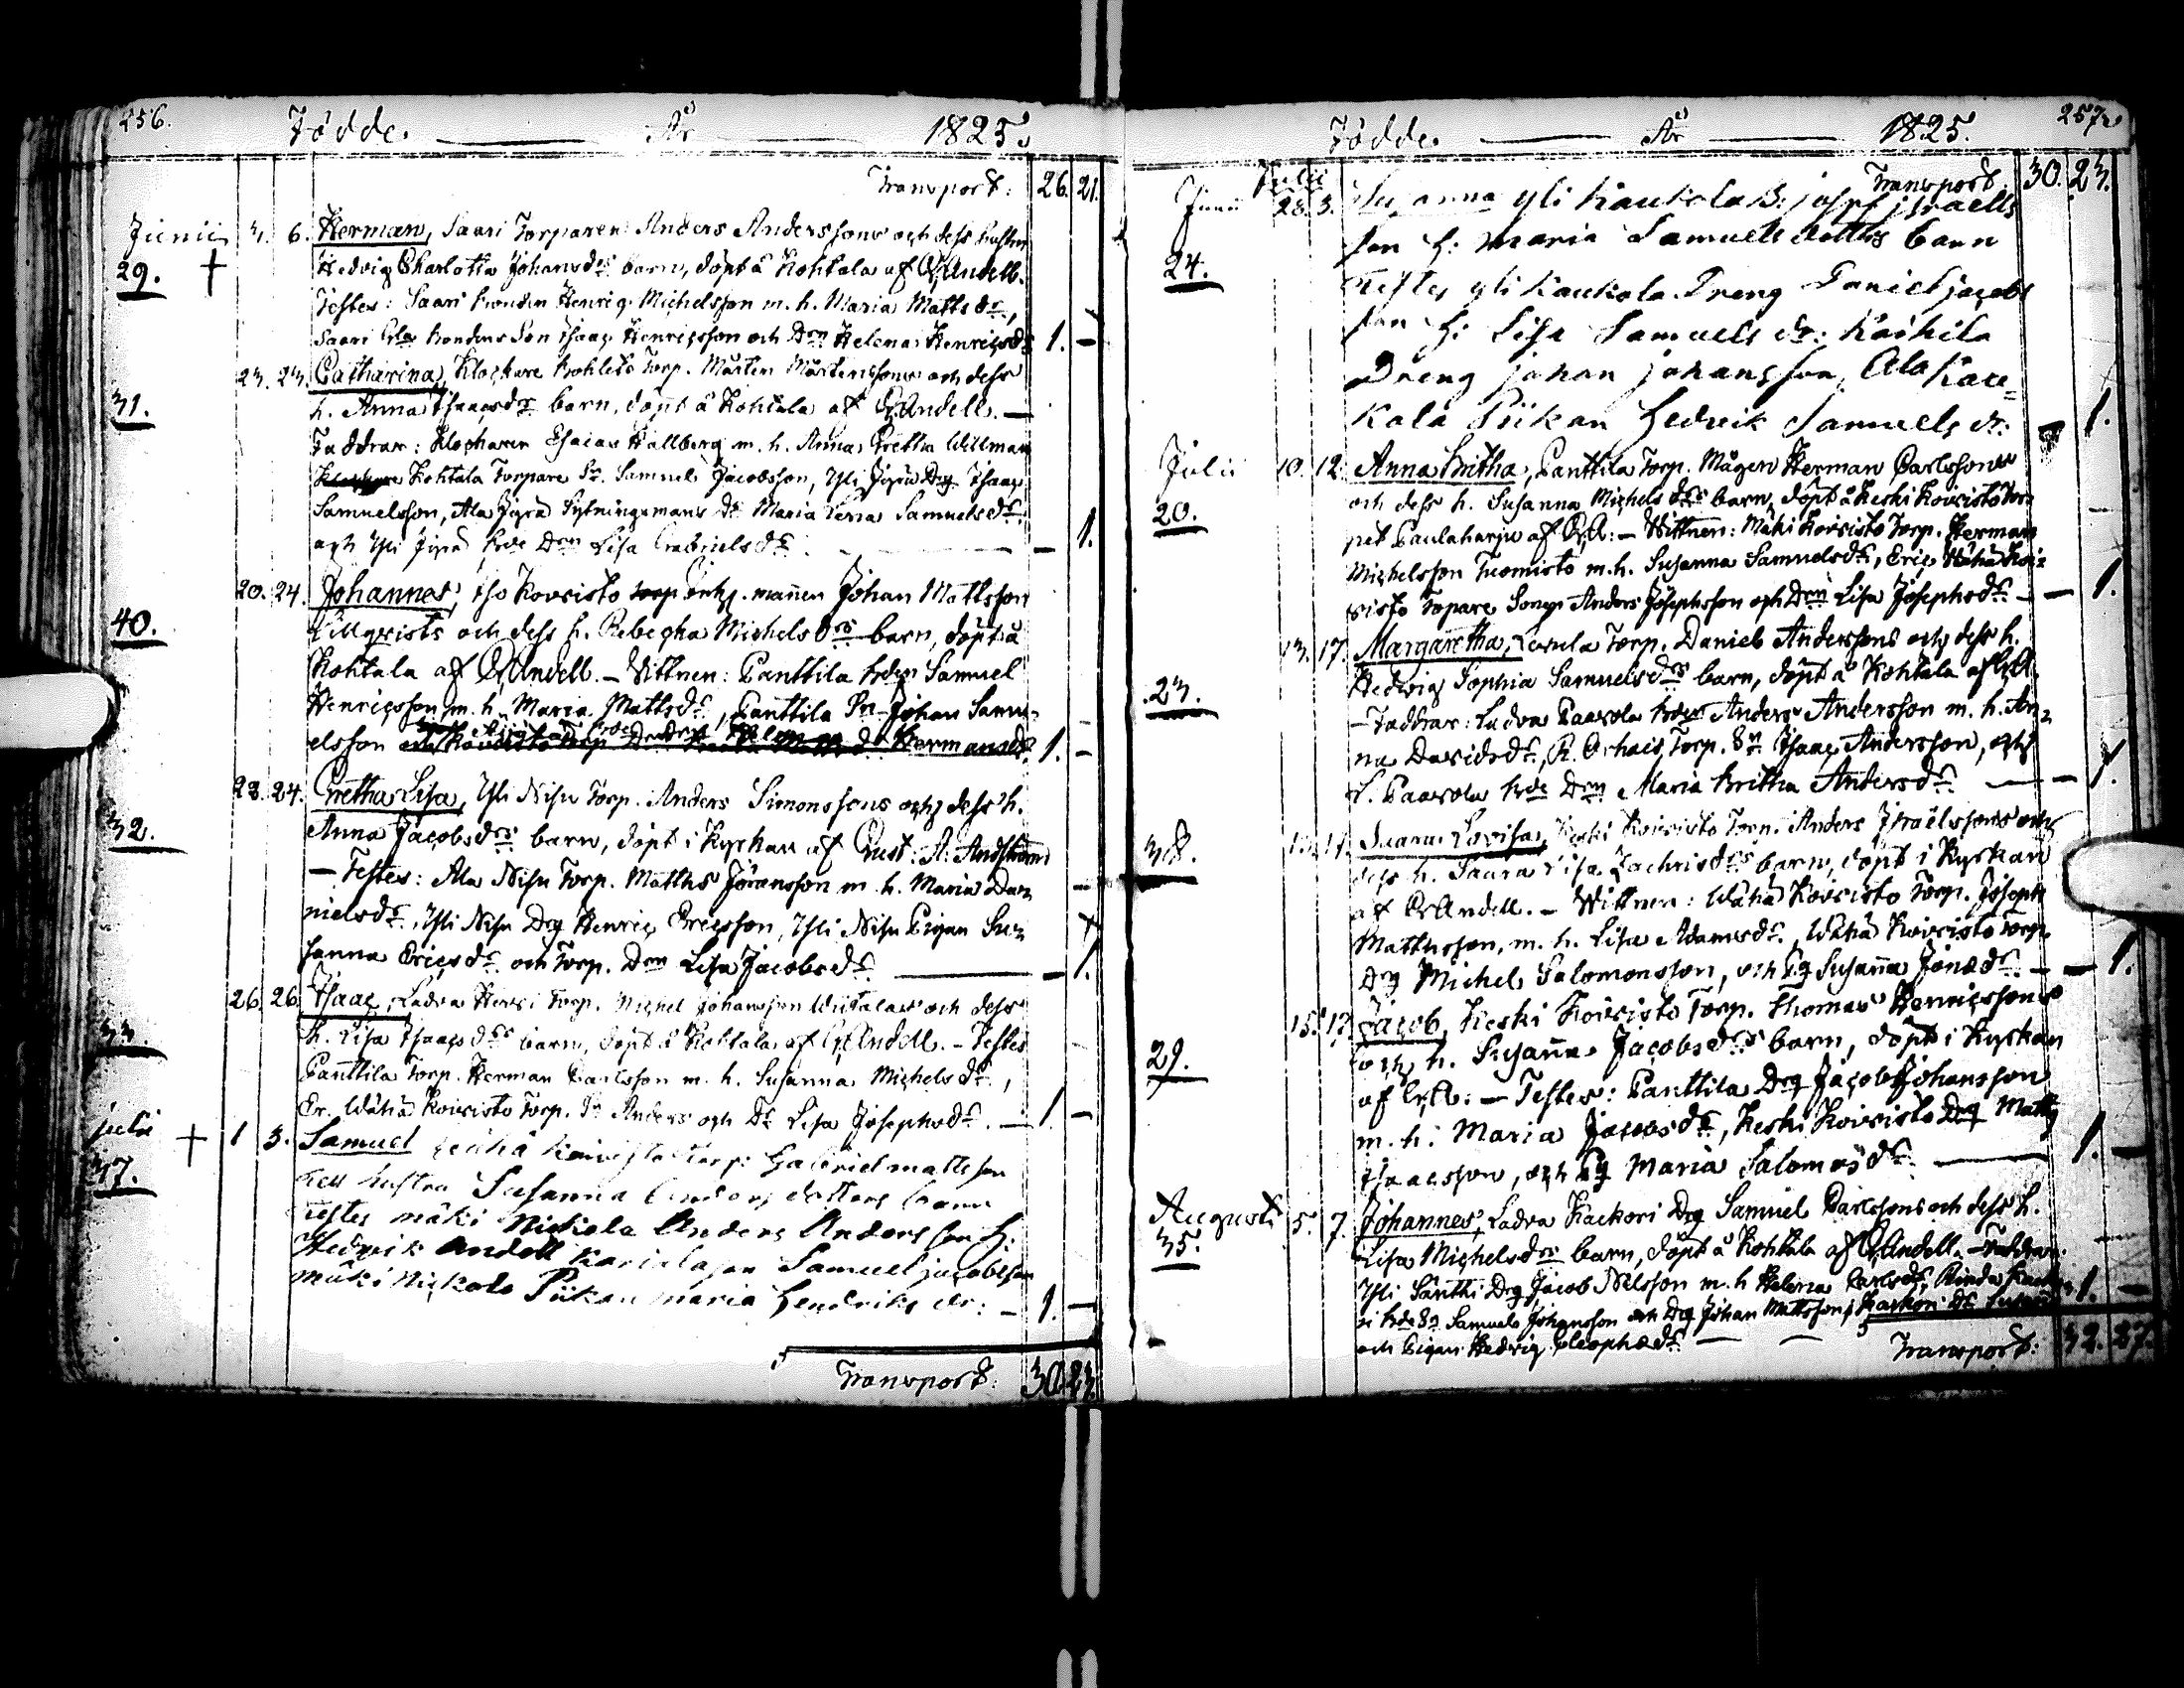 256.
Födde. År 1825.
Transport: 26. 21.
Junii 3. 6. Herman, Saari Torparen Anders Anderssons och dess hustru
29. † Hedvig Charlotta Johansdrs barn, döpt å Kohtala af Andell.
Testes: Saari bonden Henric Michelsson m. h. Maria Matts dr,
Saari bondens Son Isaac Henricsson och Drn Helena Henricsdr 1. –
23. 23. Catharina, Klockare Torp. Mårten Mårtenssons och dess
31. h. Anna Isaacsdrs barn, döpt å Kohtala af Andell. —
Faddrar: Klockaren Esaias Hallberg m. h. Anna Gretha Willman
Kohtala Torpare Sn. Samuel Jacobsson, Yli Jyrä Drg Isaac
Samuelsson, Ala Jyrä Sytningsmans Dr Maria Samuelsdr.
och Yli Jyrä Drn Lisa Gabrielsdr – 1.
20. 24. Johannes, Iso Kovisto mannen Johan Mattsson
40. Lillqvists och dess h. Rebecka Michelsdrs barn, döpt å
Kohtala af Andell. – Vittnen: Panttila Samuel
Henricsson m. h. Maria Mattsdr, Panttila Sn Johan Samu-
elsson Hermansdr. 1. –
23. 24. Gretha Lisa, Yli Nisu Torp. Anders Simonssons och dess h.
32. Anna Jacobsdrs barn, döpt i Kyrkan af
– Testes: Ala Nisu Torp. Matths Jöransson m. h. Maria Da-
nielsdr, Yli Nisu Drg Henric Ericsson, Yli Nisu Pigan Su-
sanna Ericsdr och Torp. Drn Lisa Jacobsdr — – 1.
26. 26. Isaac, Ladva Torp. Michel Johansson och dess
33. h. Lisa Isaacsdrs barn, döpt å Kohtala af Andell. – Testes
Panttila Torp. Herman Carlsson m. h. Susanna Michelsdr,
Wähä Koivisto Torp. Sn Anders och Dr Lisa Josephsdr. – 1. –
julii † 1 3. Samuel Koivisto Torp: Gabriel mattsson
37. hustru Susanna Anders dotters barn
Testes mäki Nickola Anders Andersson h:
Hedvik Andell Samuel jacobsson
mäki Nickola Piikan maria hendriks dr: – 1. –
Transport: 30. 23.
257.
Födde. År 1825.
Transport 30. 23.
Julii
Junii 28. 3. Susanna yli Kaukola B: josef jsraells
son h: maria Samuels dotters barn
24. Testes yli Kaukola Dreng Daniel jacobs
son h: Lisa Samuels dr:
Dreng johan johansson, Ala Kau-
kola Piikan Hedvik Samuels dr: – 1.
Julii 10. 12. Anna Britha, Panttila Torp. Mågen Herman Carlssons
20. och dess h. Susanna Michelsdrs barn, döpt å Keski Kovisto Tor-
pet Paulaharju af – Vittnen: Mäki Kovisto Torp. Herman
Michelsson Tuomisto m. h. Susanna Samuelsdr, Wähä Koi-
visto Torpare Sonen Anders Josephsson och Drn Lisa Josephsdr – – 1.
13. 17. Margaretha, Torp. Daniel Anderssons och dess h.
23. Hedvig Sophia Samuelsdrs barn, döpt å Kohtala af
– Faddrar: Ladva Paavola Anders Andersson m. h. An-
na Davidsdr, Torp. Sn Isaac Andersson, och
L. Paavola Drn Maria Britha Andersdr. — – 1.
Lovisa, Keski Koivisto Torp. Anders Israelssons och
38. dess h. Laura Lisa Zachrisdrs barn, döpt i Kyrkan
af Andell. – Vittnen: Wähä Koivisto Torp. Joseph
Matthsson, m. h. Lisa Adamsdr, Wähä Koivisto Torp.
Drg Michel Salomonsson, och Pg Susanna Jonædr. – – 1.
15. 17. Jacob, Keski Koivisto Torp. Thomas Henricssons
29. och h. Susanna Jacobsdrs barn, döpt i Kyrkan
af – Testes: Panttila Drg Jacob Johansson
m. h. Maria Jacobsdr, Keski Koivisto Drg Matts
Isaacsson, och Pg Maria Salomosdr. — 1. –
Augusti 5. 7. Johannes, Ladva Kackori Drg Samuel Carlssons och dess h.
35. Lisa Michelsdrs barn, döpt å Kohtala af Andell. – Faddrar:
Yli Säntti Drg Jacob Nilsson m. h. Helena Carlsdr, 1. –
Sn Samuel Johansson och Drg Johan Mattsson,
och Pigan Hedvig Cleophædr —
Transport: 32. 27.